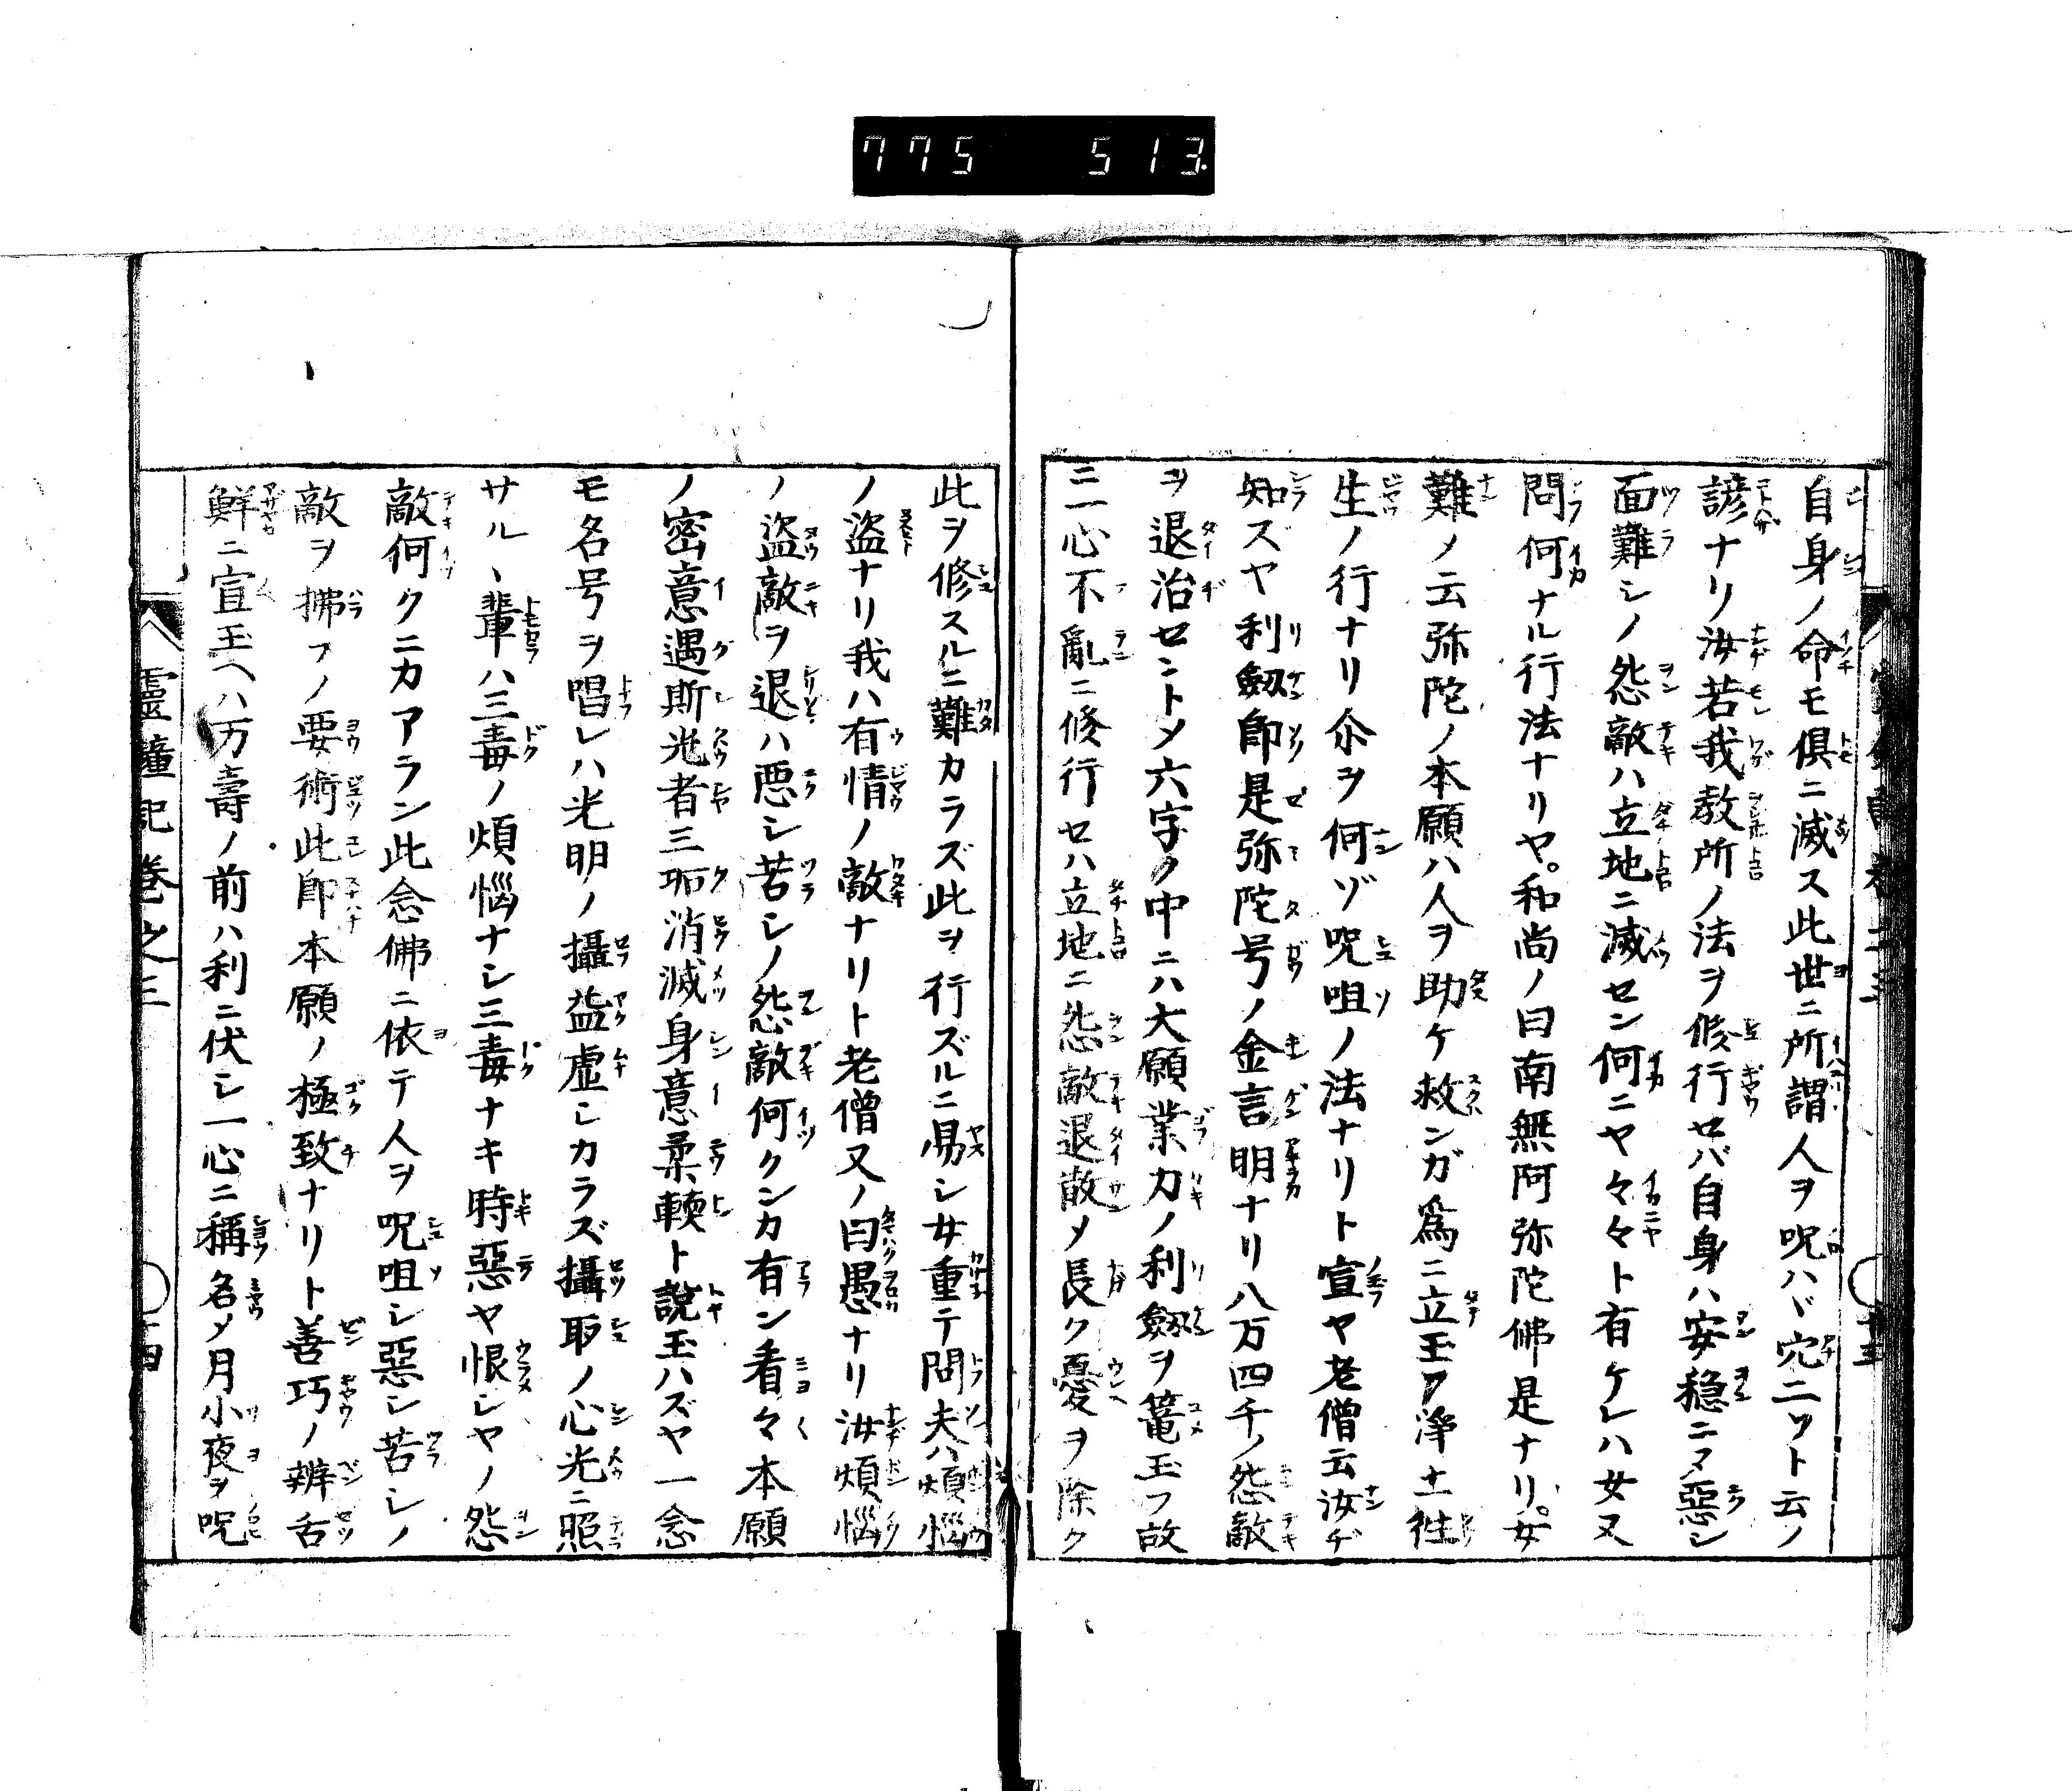 775 513
自身ノ命モ倶ニ滅ス此世ニ所謂人ヲ呪ハヾ穴二ツト云ノ
諺ナリ汝若我教所ノ法ヲ修行セバ自身ハ安穏ニ〆惡シ
面難シノ怨敵ハ立地ニ滅セン何ニヤ々々ト有ケレハ女又
問何ナル行法ナリヤ。和尚ノ曰南無阿弥陀佛是ナリ。女
難ノ云弥陀ノ本願ハ人ヲ助ケ救ンガ爲ニ立玉ヲ淨土徃
生ノ行ナリ尒ヲ何ゾ呪咀ノ法ナリト宣ヤ老僧云汝ヂ
知ズヤ利劔即是弥陀号ノ金言明ナリ八万四千ノ怨敵
ヲ退治セントメ六字ク中ニハ大願業力ノ利劔ヲ篭玉フ故
ニ一心不亂ニ修行セハ立地ニ怨敵退散メ長ク憂ヲ除ク
此ヲ修スルニ難カラズ此ヲ行ズルニ易シ女重テ問夫ハ煩惱
ノ盗ナリ我ハ有情ノ敵ナリト老僧又ノ曰愚ナリ汝煩惱
ノ盗敵ヲ退ハ悪シ苦シノ怨敵何クンカ有ン看々本願
ノ密意遇斯光者三垢消滅身意柔輭ト說玉ハズヤ一念
モ名号ヲ唱レハ光明ノ攝益虚シカラズ攝取ノ心光ニ照
サルヽ輩ハ三毒ノ煩惱ナシ三毒ナキ時惡ヤ恨シヤノ怨
敵何クニカアラン此念佛ニ依テ人ヲ呪咀シ惡シ苦シノ
敵ヲ拂フノ要術此即本願ノ極致ナリト善巧ノ辨舌
鮮ニ宣玉ヘハ万壽ノ前ハ利ニ伏シ一心ニ稱名〆月小夜ヲ呪
靈驗記巻之三